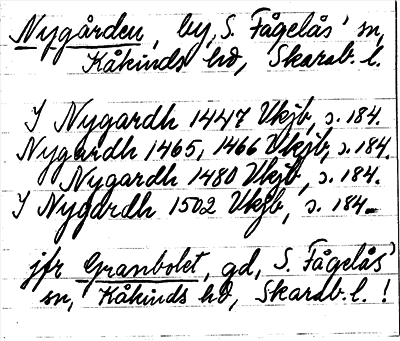 Nygården, by, S. Fågelås' sn,
Kåkinds hd, Skarab. l.
I Nygardh 1447 Vkjb, s. 184.
Nygardh 1465, 1466 Vkjb, s. 184.
Nygardh 1480 Vkjb, s. 184.
I Nygardh 1502 Vkjb, s. 184.
jfr Granbolet, gd, S. Fågelås'
sn, Kåkinds hd, Skarab. l. !